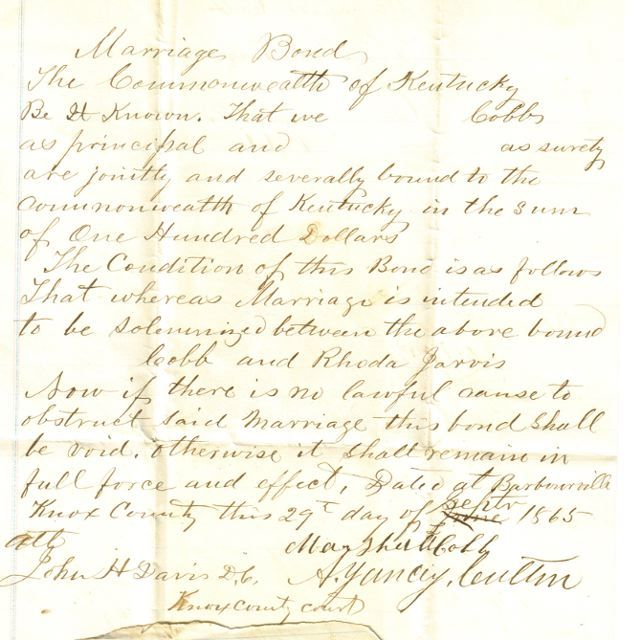 Marriage Bond
The Commonwealth of Kentucky
Be It Known. That we Cobb
as principal and as surety
are jointly and severally bound to the
Commonwealth of Kentucky in the sum
of One Hundred Dollars
The Condition of this Bond is as follows
That whereas Marriage is intended
to be solemnized between the above bound
Cobb and Rhoda Jarvis
Now if there is no lawful cause to
obstruct said Marriage this bond shall
be void. otherwise it shall remain in
full force and effect, Dated at Barbourville
Septr
Knox County this 29t day of June 1865
Att
Marshall Cobb
John H Davis D.C. A. Yancy
Knox county court